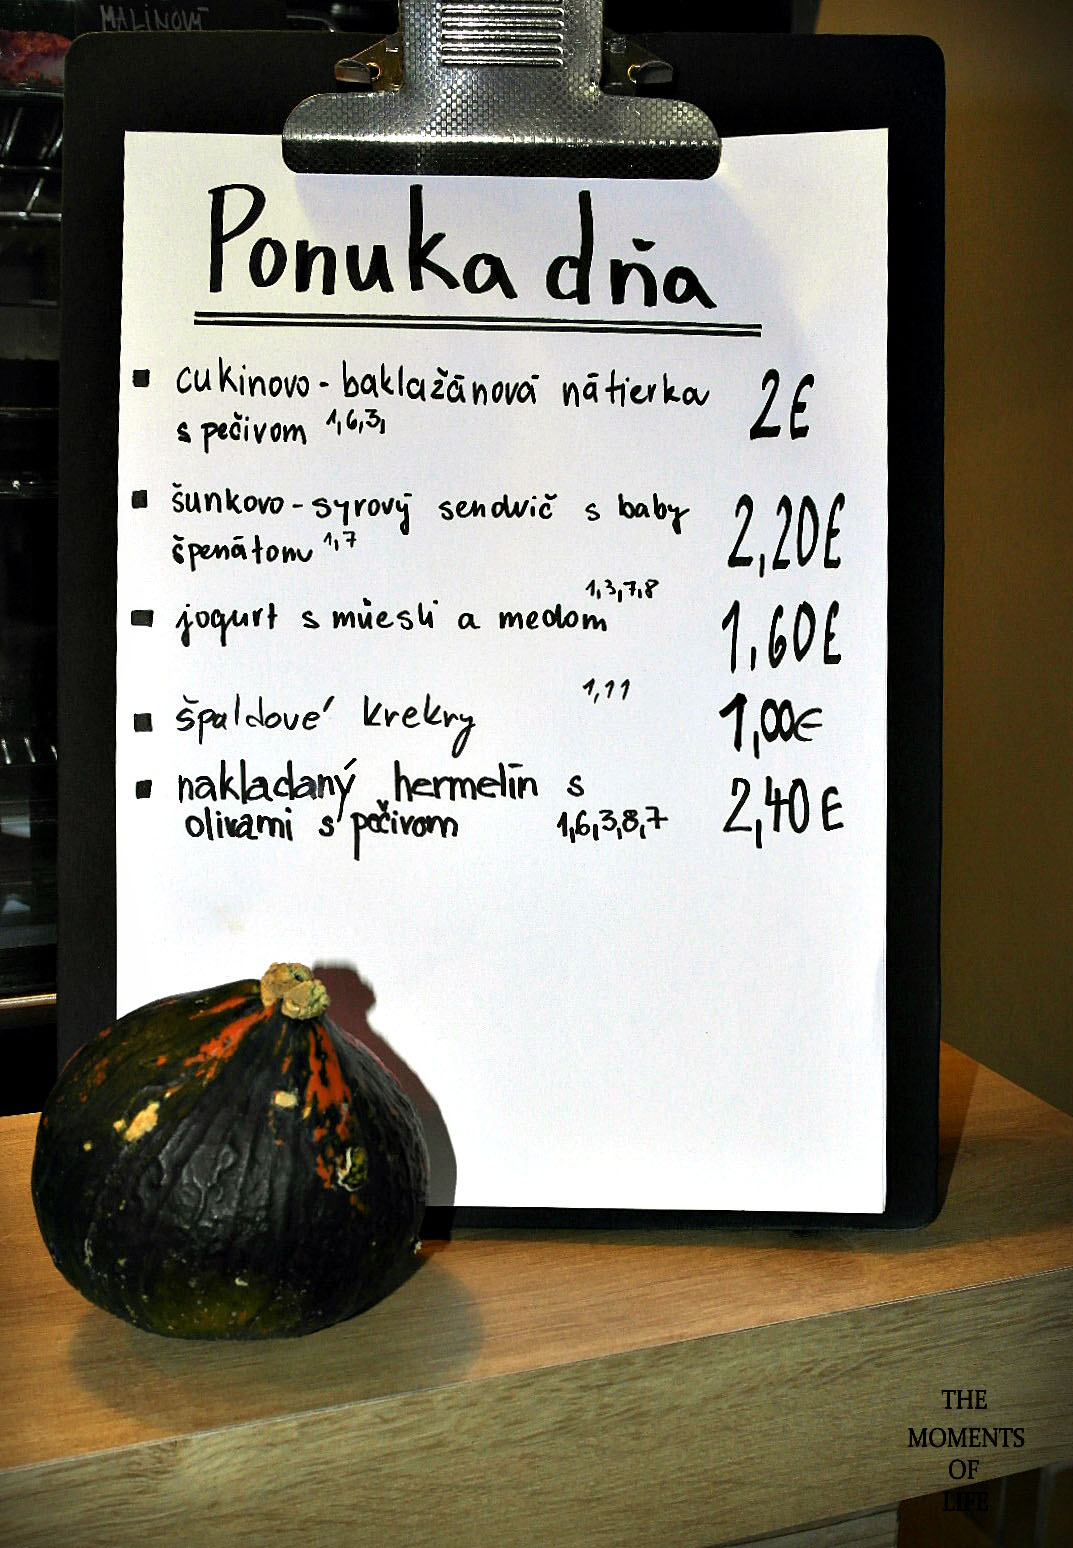 MALINOVÝ
Ponuka dňa
cukinovo-baklažánová nátierka 2€
s pečivom 1,6,3,
šunkovo-syrový sendvič s baby 2,20€
špenátom 1,7
jogurt s müesli a medom 1,3,7,8 1,60€
špaldové krekry 1,11 1,00€
nakladaný hermelín s 2,40€
olivami s pečivom 1,6,3,8,7
THE
MOMENTS
OF
LIFE